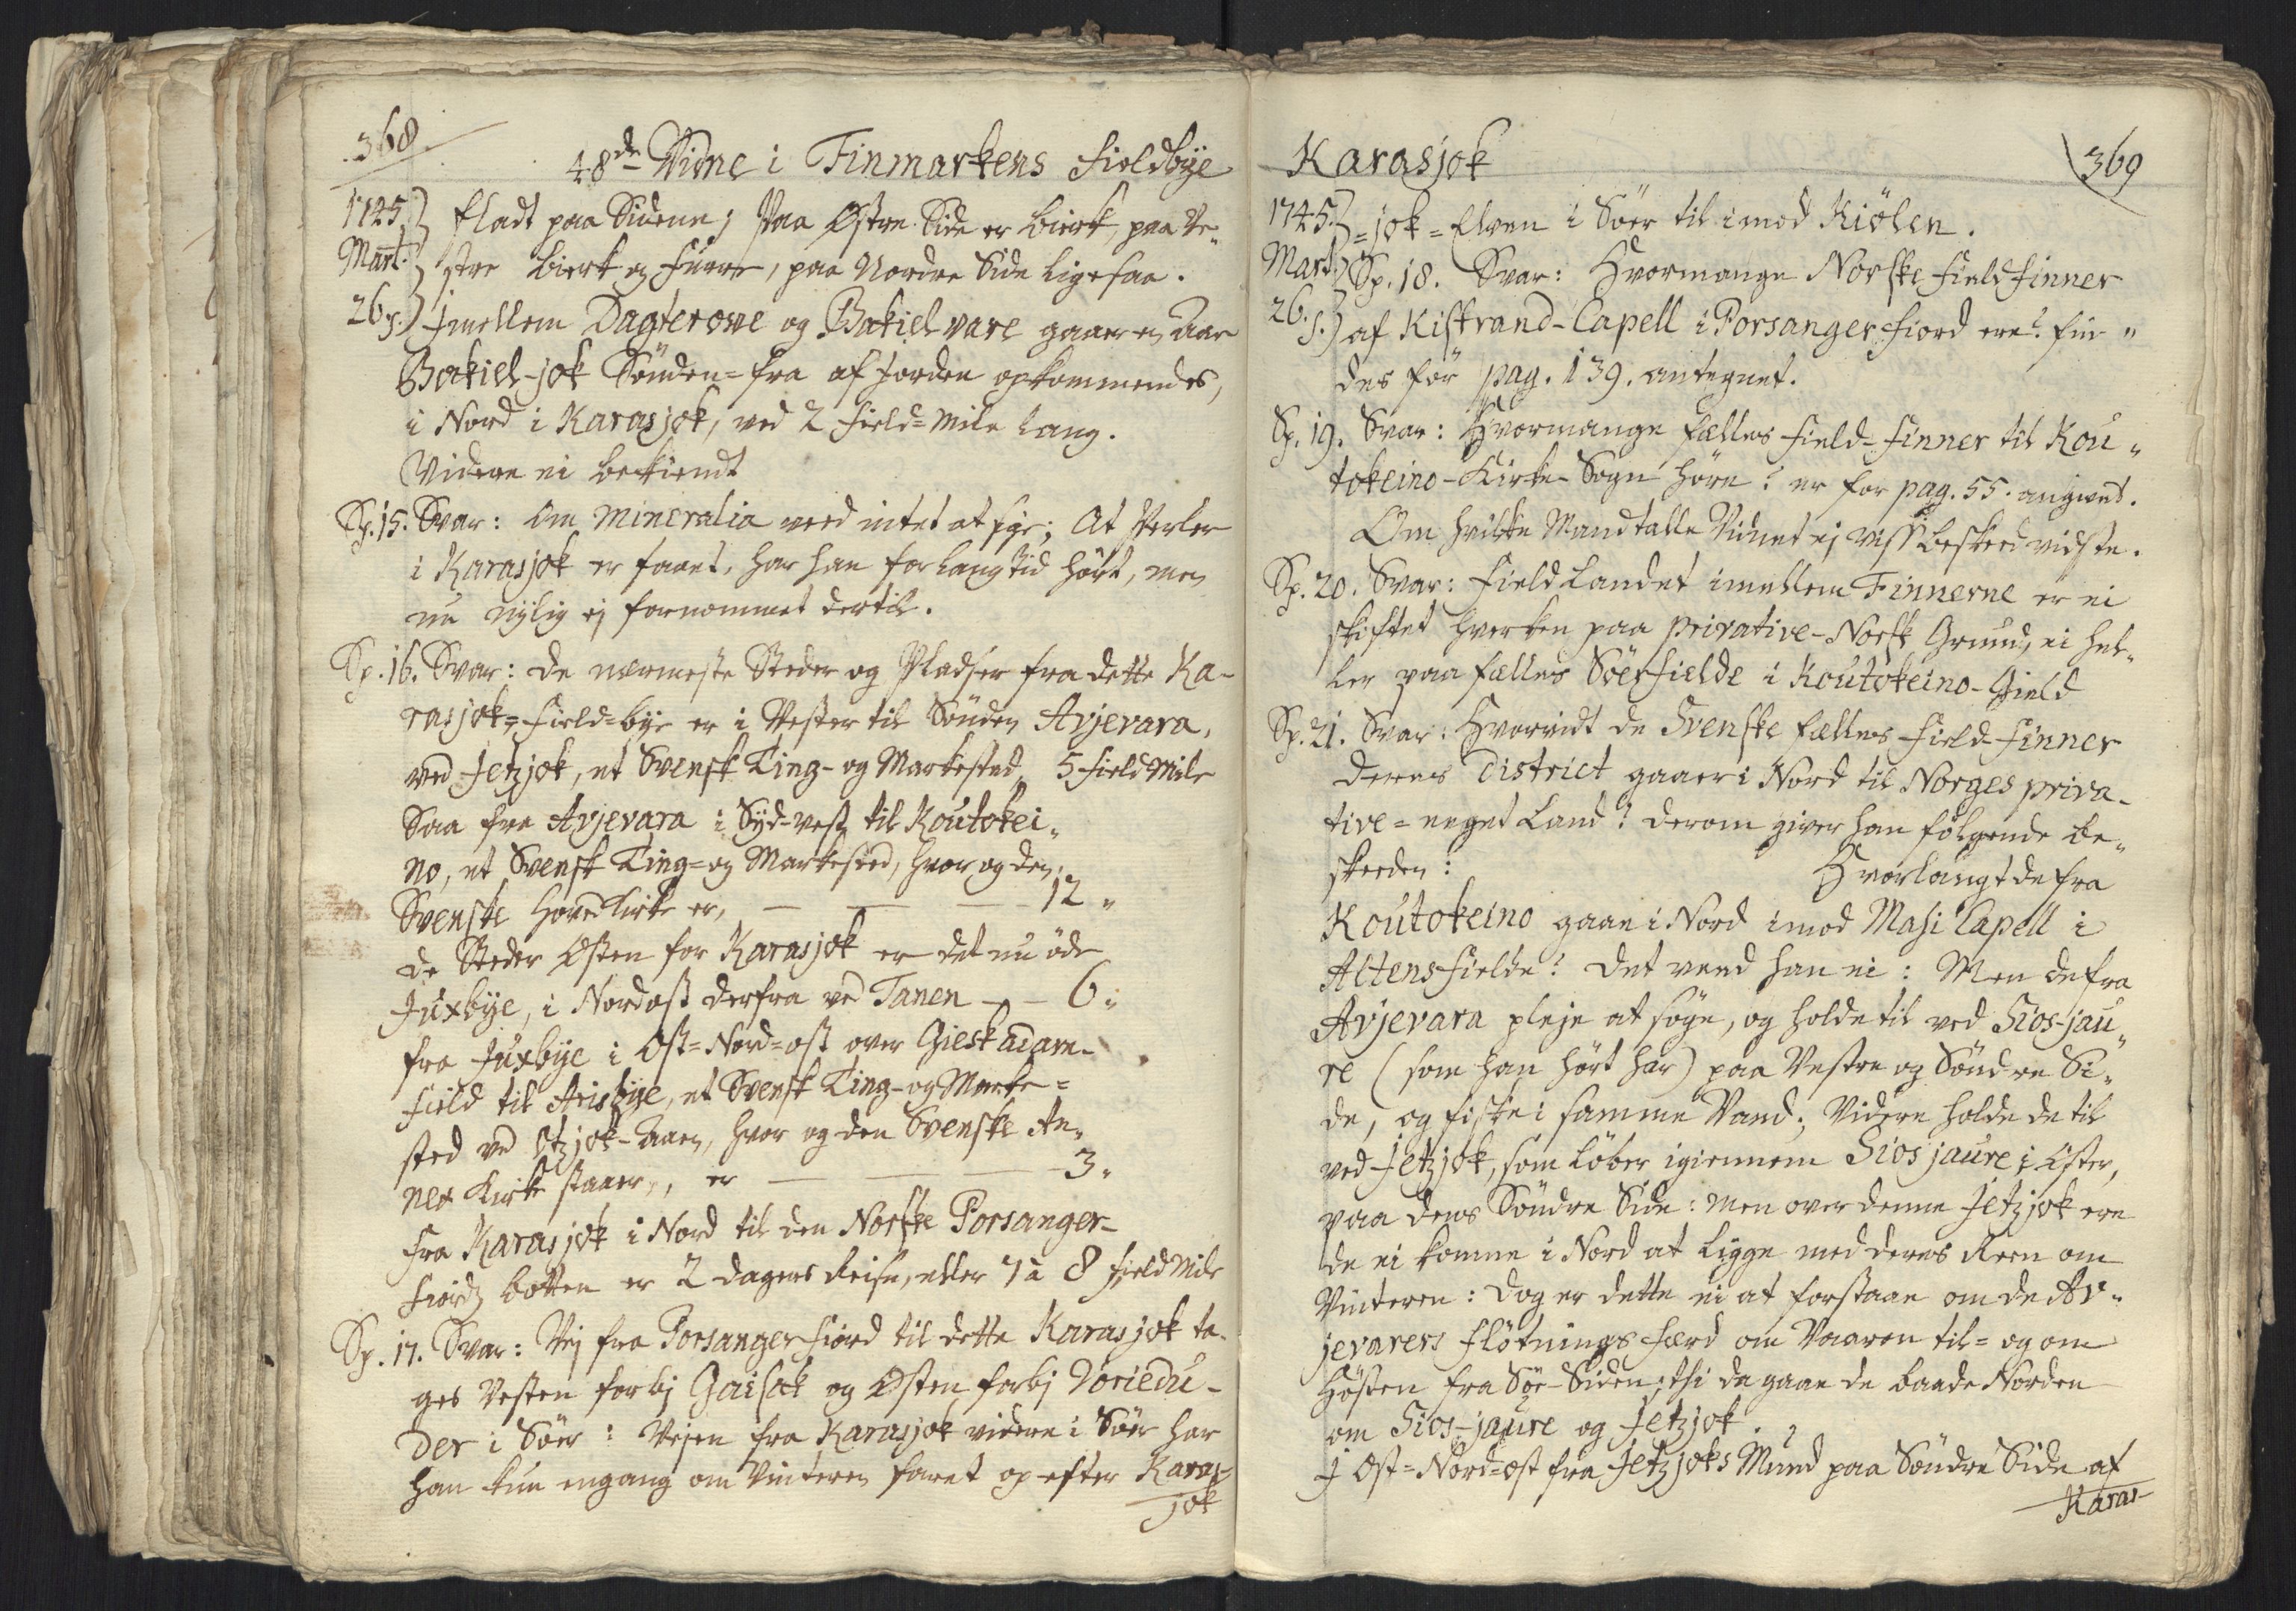 368.
48de Vidne i Finmarkens Fieldbÿe
1745. fladt paa Siderne; Paa Østre Side er birk, paa Ve„
Mart. stre birk og Furre, paa Nordre Side ligesaa.
26. s. Jmellem Dagterove og Bakielvare gaaer en Aae
Bakiel-jok Sönden-fra af Jorden opkommendes,
i Nord i Karasjok, ved 2 Field-Mile lang.
Videre ei bekiendt
Sp. 15. Svar: Om Mineralia veed intet at sige; At Perler
i Karasjok er faaet, har han for lang tid hört, men
nu nÿlig ej fornommet dertil.
Sp. 16. Svar: De nærmeste Steder og Pladser fra dette Ka-
rasjok-Field-bÿe er i Vester til Sönden Avjevara,
ved Jetzjok, et Svensk Ting- og Markested, 5 Field Mile
Saa fra Avjevara i Sÿd-vest til Koutokei„
no, et Svensk Ting- og Markested, hvor og den
Svenske Hoved Kirke er, — — — 12 „
De Steder Østen for Karasjok er det nu öde
Juxbÿe, i Nordost derfra ved Tanen — — 6 „
fra Juxbÿe i Ost-Nord-ost over Gieskadam-
Field til Arisbÿe, et Svensk Ting- og Marke-
sted ved Utzjok-Aaen, hvor og den Svenske An„
nex Kirke staaer, er — — 3 „
Fra Karasjok i Nord til den Norske Porsanger-
Fiords botten er 2 dagers Reise, eller 7 à 8 Field Mile
Sp. 17. Svar: Vej fra Porsanger Fiord til dette Karasjok ta-
ges Vesten forbj Gaisak og Østen forbj Voriedu-
der i Söer: Vejen fra Karasjok videre i Söer har
han kun engang om Vinteren faret op-efter Karas-
jok
Karasjok
369
1745. =jok=Elven i Söer til imod Kiölen.
Mart. Sp. 18. Svar: Hvormange Norske Field Finner
26. s. af Kistrand-Capell i Porsanger Fiord ere? fin„
des för pag. 139. antegnet.
Sp. 19. Svar: Hvormange fælles Field-Finner til Kou„
tokeino-Kirke-Sogn höre? er for pag. 55. angivet.
Om hvilke Mandtalle Vidnet ej viss beskeed vidste.
Sp. 20. Svar: Field Landet imellem Finnerne er ei
skiftet hverken paa privative-Norsk Grund, ei hel„
ler paa fælles Söerfielde i Koutokeino-Gield
Sp. 21. Svar: Hvorvidt de Svenske fælles Field-Finner
deres District gaaer i Nord til Norges priva-
tive-eeget Land? derom giver han fölgende be„
skeeden:
Hvorlangt de fra
Koutokeino gaae i Nord imod Masi Capell i
Altens Fielde? det veed han ei: Men de fra
Avjevara pleje at söge, og holde til ved Sios-jau„
re (som han hört har) paa Vestre og Söndre Si„
de, og fiske i samme Vand; Videre holde de til
ved Jetzjok, som löber igiennem Siosjaure i Øster,
paa dens Söndre Side: Men over denne Jetzjok ere
de ei komne i Nord at ligge med deres Reen om
Vinteren: Dog er dette ei at forstaae om de Av„
jevarers flötnings færd om Vaaren til- og om
Hösten fra Söe-Siden; thi da gaae de baade Norden
om Sios-jaure og Jetzjok.
J Ost-Nord-ost fra Jetzjoks Mund paa Söndre Side af
Karas-